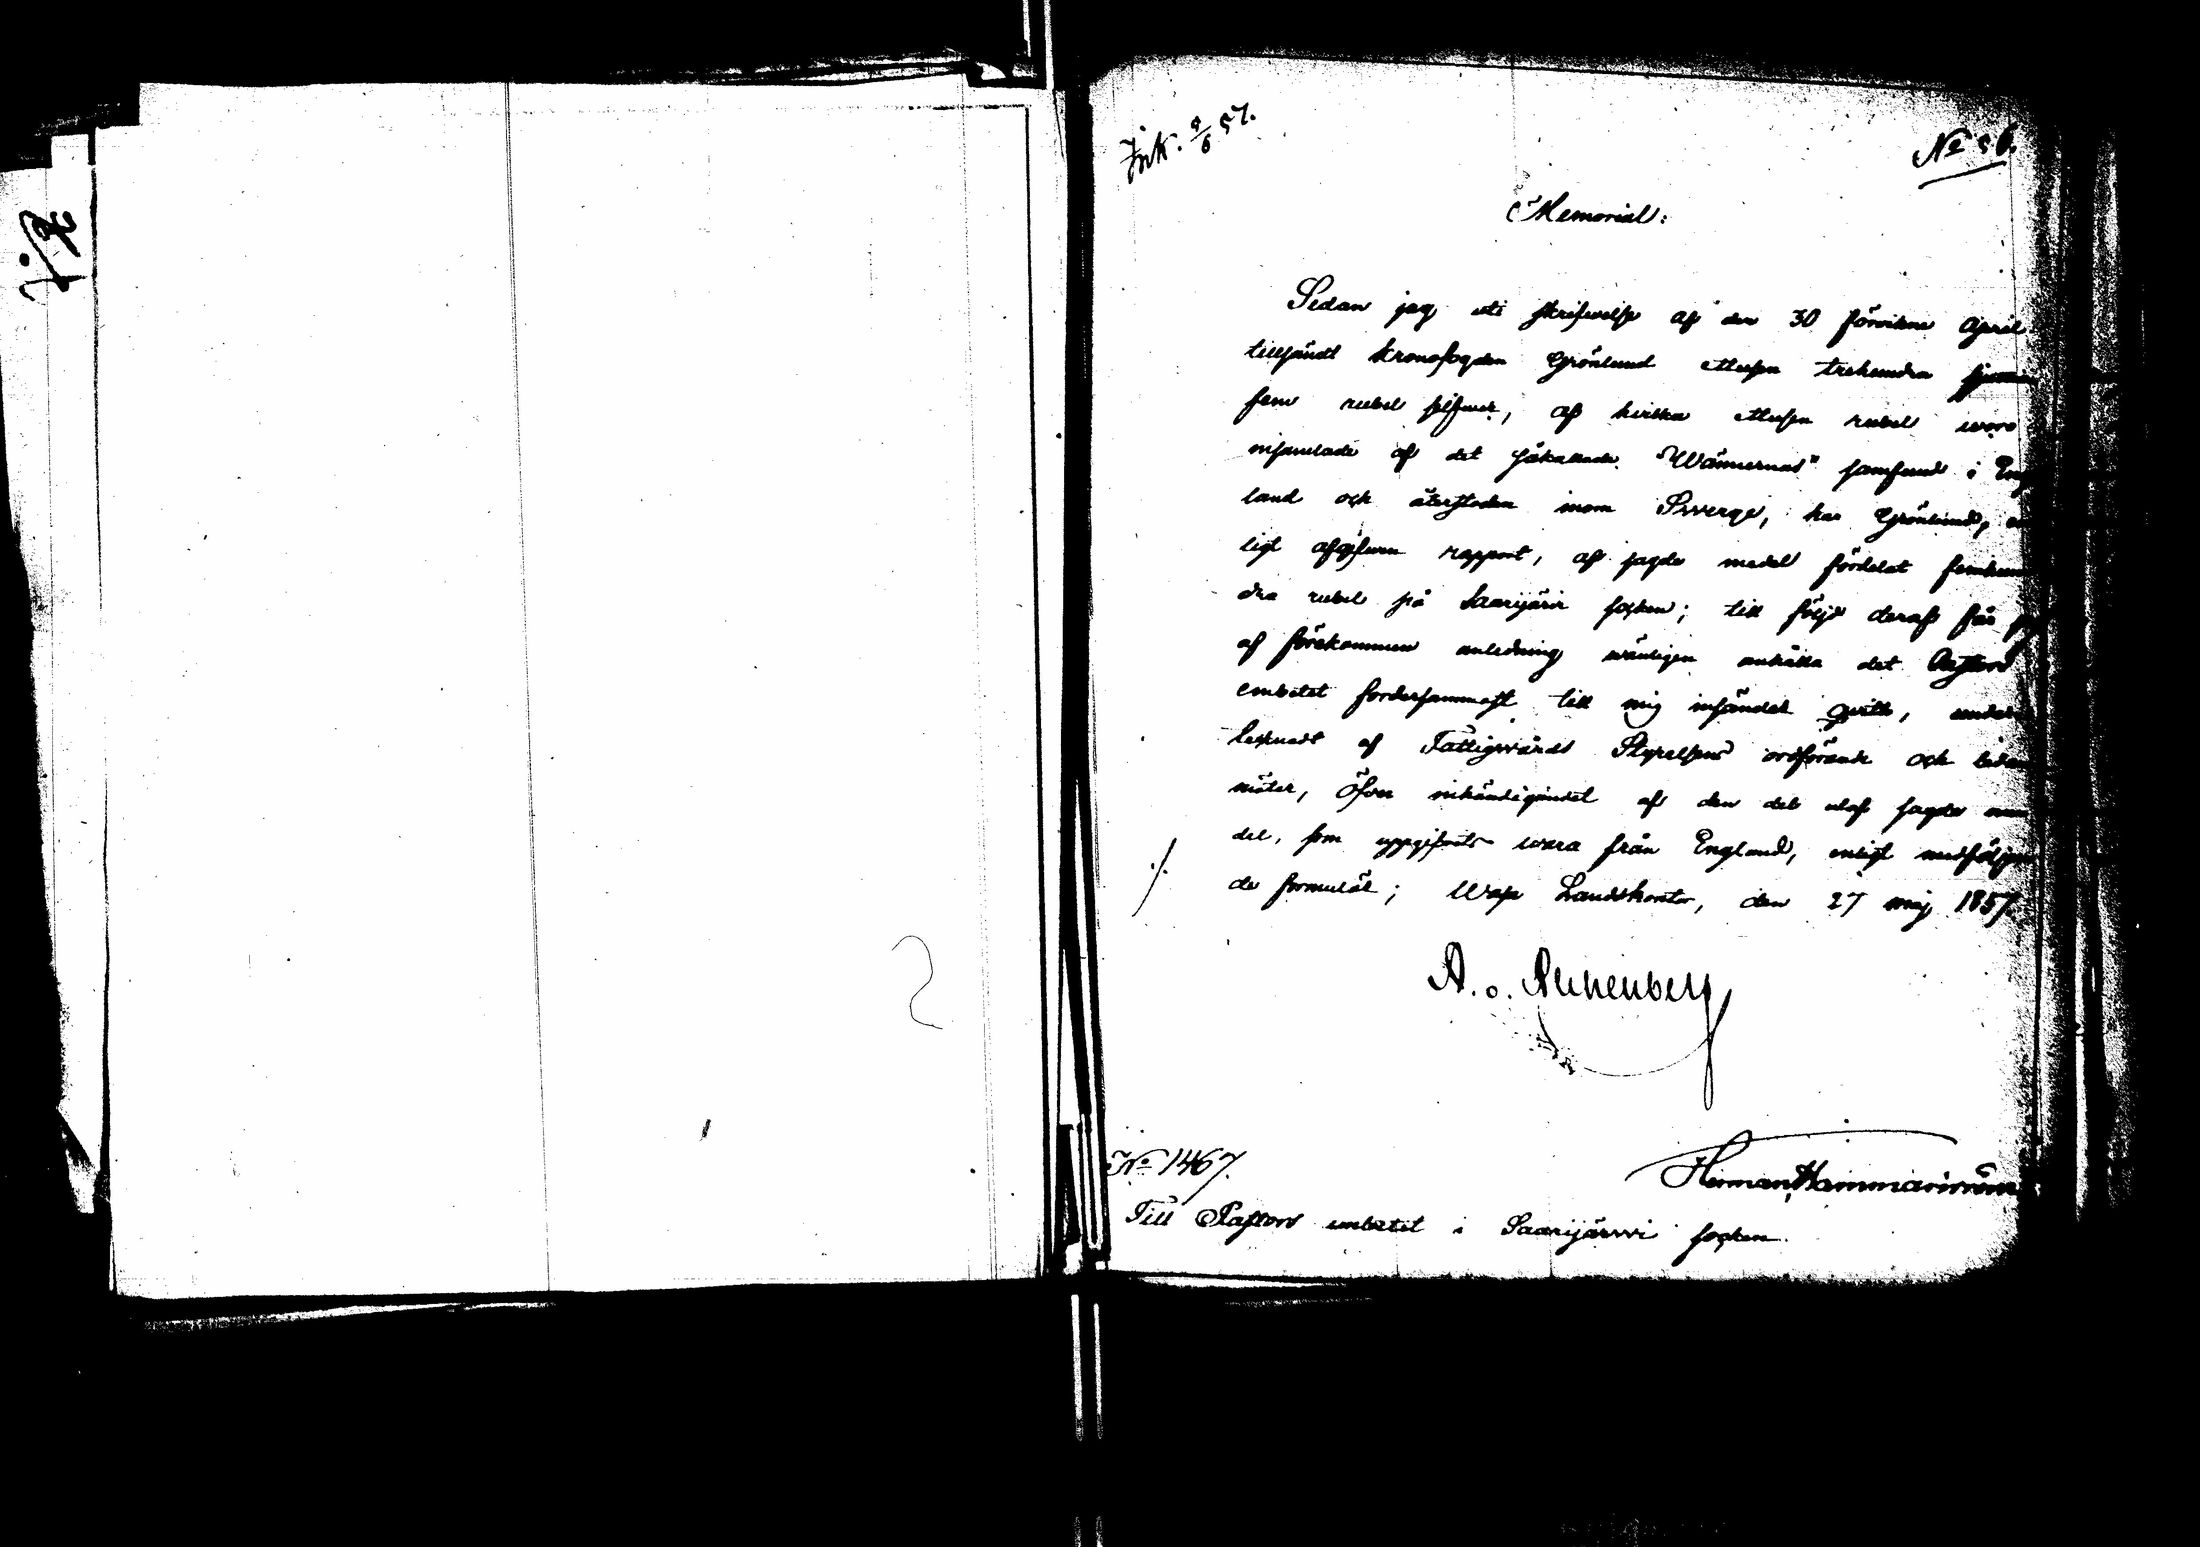 Ink. 9/6 57.
No 56.
Memorial:
Sedan jag uti skrifvelse af den 30 sistvikne April
tillsändt kronofogden Grönlund ettusen trehundra
fem rubel silfver, af hvilka ettusen rubel woro
insamlade af det såkallade "Wännernas" samfund i Eng
land och återstoden inom Sverge, har Grönlund, en
ligt afgifven rapport, af sagde medel fördelat femhun
dra rubel på Saarijärvi socken; till följe deraf får jag
af förekommen anledning wänligen anhålla det Pastors
embetet fordersammast till mig insänder qvitto, under
tecknadt af Fattigvårds Styrelsens ordförande och leda
möter, öfver inhändigandet af den del utaf sagde me
del, som uppgifvits wara från England, enligt medföljan
de formulär; Wasa Landskontor, den 27 maj 1857.
A. o. Rechenberg
No 1467.
Herman Hammarström
Till Pastors embetet i Saarijärvi socken.